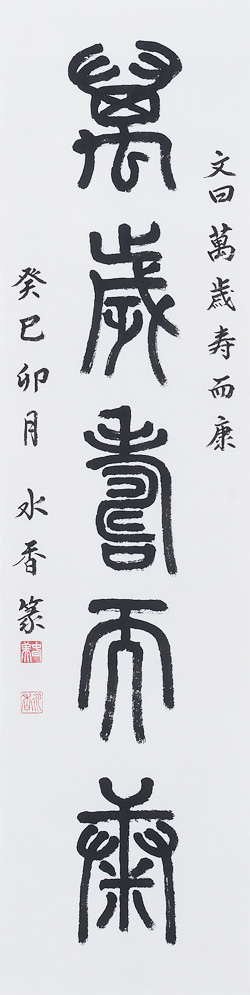 文曰萬歲寿而康
萬歲壽而康
癸巳卯月 水香篆